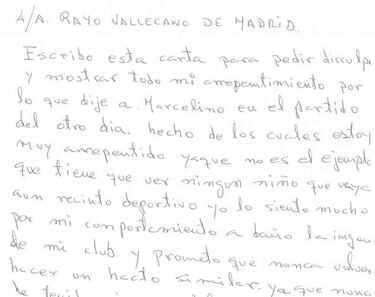 A/A. RAYO VALLECANO DE MADRID.
Escribo esta carta para pedir disculpa
y mostrar todo mi arrepentimiento por
lo que dije a Marcelino en el partido
del otro dia. hecho de los cuales estoy
Muy arrepentido yaque no es el ejemplo
que tiene que ver ningun niño que vaya
aun recinto deportivo yo lo siento mucho
por mi comportamiento a daño la imgen
de mi club. y prometo que nunca volver
hacer un hacto similar. ya que nunca
he